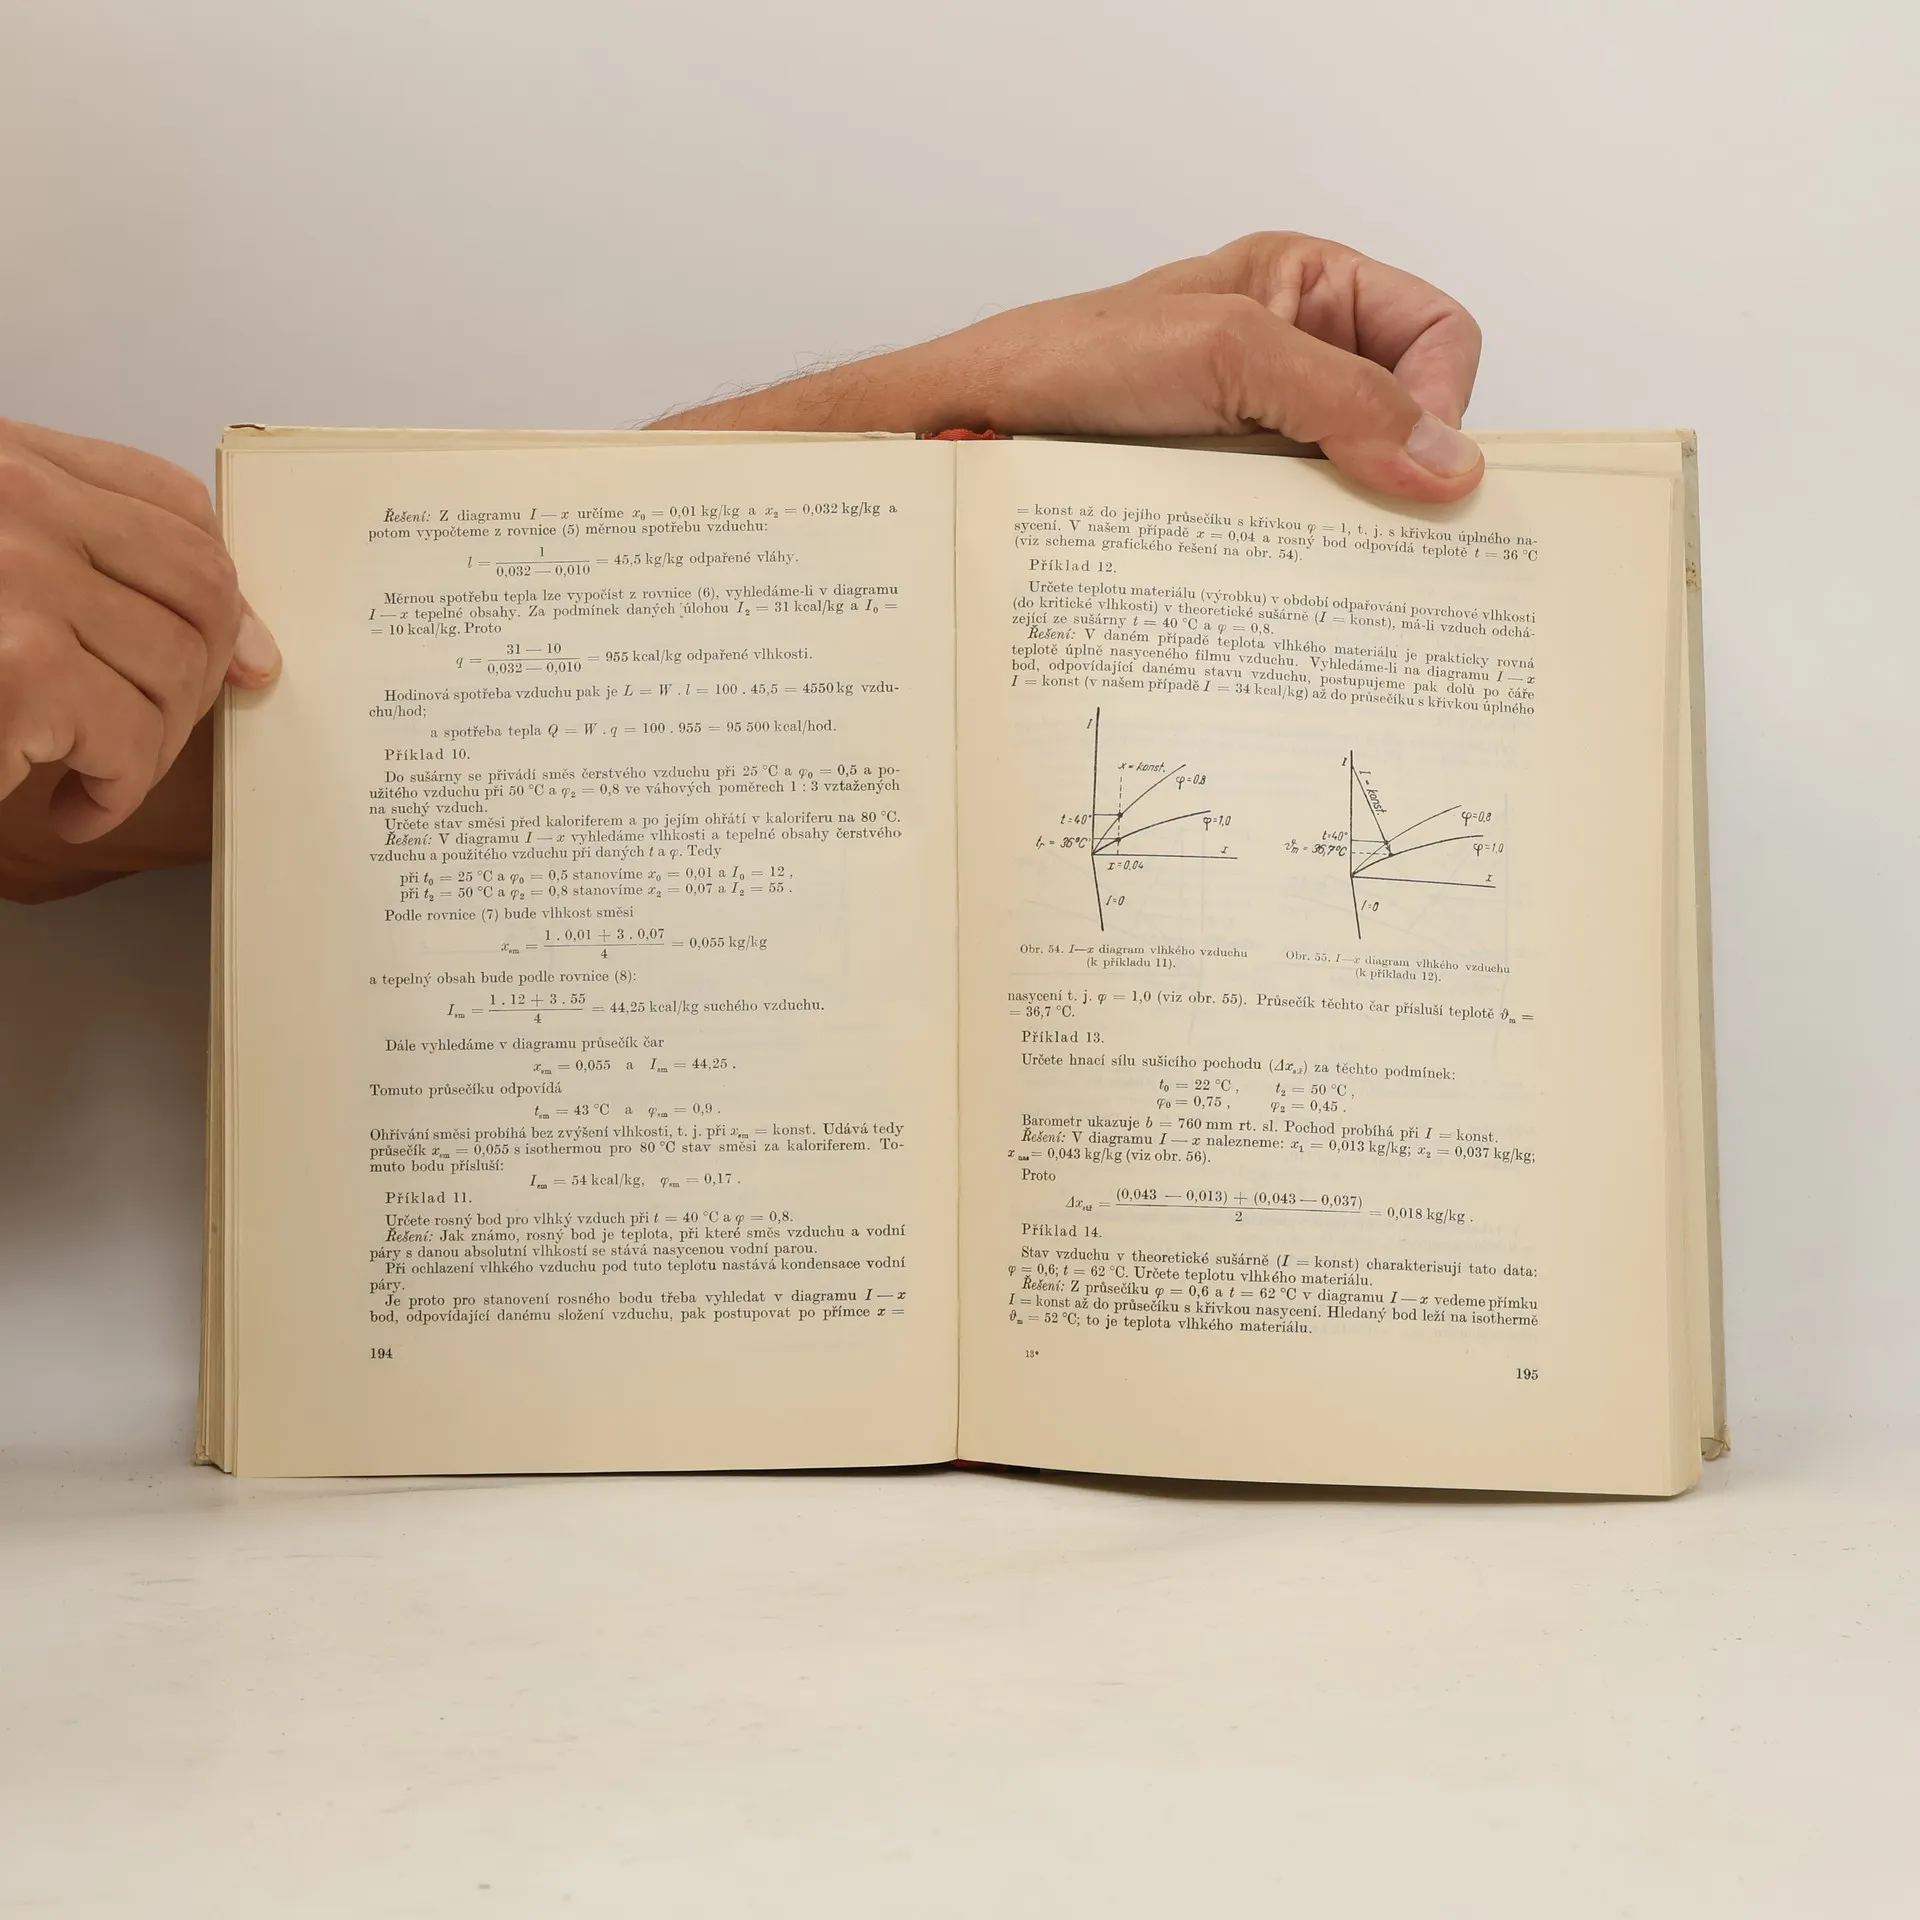 Řešení: Z diagramu I — x určíme x₀ = 0,01 kg/kg a x₂ = 0,032 kg/kg a
potom vypočteme z rovnice (5) měrnou spotřebu vzduchu:
l = 1 / (0,032 — 0,010) = 45,5 kg/kg odpařené vláhy.
Měrnou spotřebu tepla lze vypočíst z rovnice (6), vyhledáme-li v diagramu
I — x tepelné obsahy. Za podmínek daných úlohou I₂ = 31 kcal/kg a I₀ =
= 10 kcal/kg. Proto
q = (31 — 10) / (0,032 — 0,010) = 955 kcal/kg odpařené vlhkosti.
Hodinová spotřeba vzduchu pak je L = W . l = 100 . 45,5 = 4550 kg vzdu-
chu/hod;
a spotřeba tepla Q = W . q = 100 . 955 = 95 500 kcal/hod.
Příklad 10.
Do sušárny se přivádí směs čerstvého vzduchu při 25 °C a φ₀ = 0,5 a po-
užitého vzduchu při 50 °C a φ₂ = 0,8 ve váhových poměrech 1 : 3 vztažených
na suchý vzduch.
Určete stav směsi před kaloriferem a po jejím ohřátí v kaloriferu na 80 °C.
Řešení: V diagramu I — x vyhledáme vlhkosti a tepelné obsahy čerstvého
vzduchu a použitého vzduchu při daných t a φ. Tedy
při t₀ = 25 °C a φ₀ = 0,5 stanovíme x₀ = 0,01 a I₀ = 12 ,
při t₂ = 50 °C a φ₂ = 0,8 stanovíme x₂ = 0,07 a I₂ = 55 .
Podle rovnice (7) bude vlhkost směsi
xₛₘ = (1 . 0,01 + 3 . 0,07) / 4 = 0,055 kg/kg
a tepelný obsah bude podle rovnice (8):
Iₛₘ = (1 . 12 + 3 . 55) / 4 = 44,25 kcal/kg suchého vzduchu.
Dále vyhledáme v diagramu průsečík čar
xₛₘ = 0,055 a Iₛₘ = 44,25 .
Tomuto průsečíku odpovídá
tₛₘ = 43 °C a φₛₘ = 0,9 .
Ohřívání směsi probíhá bez zvýšení vlhkosti, t. j. při xₛₘ = konst. Udává tedy
průsečík xₛₘ = 0,055 s isothermou pro 80 °C stav směsi za kaloriferem. To-
muto bodu přísluší:
Iₛₘ = 54 kcal/kg, φₛₘ = 0,17 .
Příklad 11.
Určete rosný bod pro vlhký vzduch při t = 40 °C a φ = 0,8.
Řešení: Jak známo, rosný bod je teplota, při které směs vzduchu a vodní
páry s danou absolutní vlhkostí se stává nasycenou vodní parou.
Při ochlazení vlhkého vzduchu pod tuto teplotu nastává kondensace vodní
páry.
Je proto pro stanovení rosného bodu třeba vyhledat v diagramu I — x
bod, odpovídající danému složení vzduchu, pak postupovat po přímce x =
194
= konst až do jejího průsečíku s křivkou φ = 1, t. j. s křivkou úplného na-
sycení. V našem případě x = 0,04 a rosný bod odpovídá teplotě t = 36 °C
(viz schema grafického řešení na obr. 54).
Příklad 12.
Určete teplotu materiálu (výrobku) v období odpařování povrchové vlhkosti
(do kritické vlhkosti) v theoretické sušárně (I = konst), má-li vzduch odchá-
zející ze sušárny t = 40 °C a φ = 0,8.
Řešení: V daném případě teplota vlhkého materiálu je prakticky rovná
teplotě úplně nasyceného filmu vzduchu. Vyhledáme-li na diagramu I — x
bod, odpovídající danému stavu vzduchu, postupujeme pak dolů po čáře
I = konst (v našem případě I = 34 kcal/kg) až do průsečíku s křivkou úplného
I
x = konst.
φ=0,8
t=40°
φ=1,0
tᵣ = 36°C
x
x=0,04
I=0
Obr. 54. I—x diagram vlhkého vzduchu
(k příkladu 11).
I
I = konst.
φ=0,8
t=40°
φ=1,0
= 36,7°C
x
I=0
Obr. 55. I—x diagram vlhkého vzduchu
(k příkladu 12).
nasycení t. j. φ = 1,0 (viz obr. 55). Průsečík těchto čar přísluší teplotě ϑₘ =
= 36,7 °C.
Příklad 13.
Určete hnací sílu sušicího pochodu (Δxₛₜř) za těchto podmínek:
t₀ = 22 °C , t₂ = 50 °C ,
φ₀ = 0,75 , φ₂ = 0,45 .
Barometr ukazuje b = 760 mm rt. sl. Pochod probíhá při I = konst.
Řešení: V diagramu I — x nalezneme: x₁ = 0,013 kg/kg; x₂ = 0,037 kg/kg;
x nas = 0,043 kg/kg (viz obr. 56).
Proto
Δxₛₜř = ((0,043 — 0,013) + (0,043 — 0,037)) / 2 = 0,018 kg/kg .
Příklad 14.
Stav vzduchu v theoretické sušárně (I = konst) charakterisují tato data:
φ = 0,6; t = 62 °C. Určete teplotu vlhkého materiálu.
Řešení: Z průsečíku φ = 0,6 a t = 62 °C v diagramu I — x vedeme přímku
I = konst až do průsečíku s křivkou nasycení. Hledaný bod leží na isothermě
ϑₘ = 52 °C; to je teplota vlhkého materiálu.
13*
195